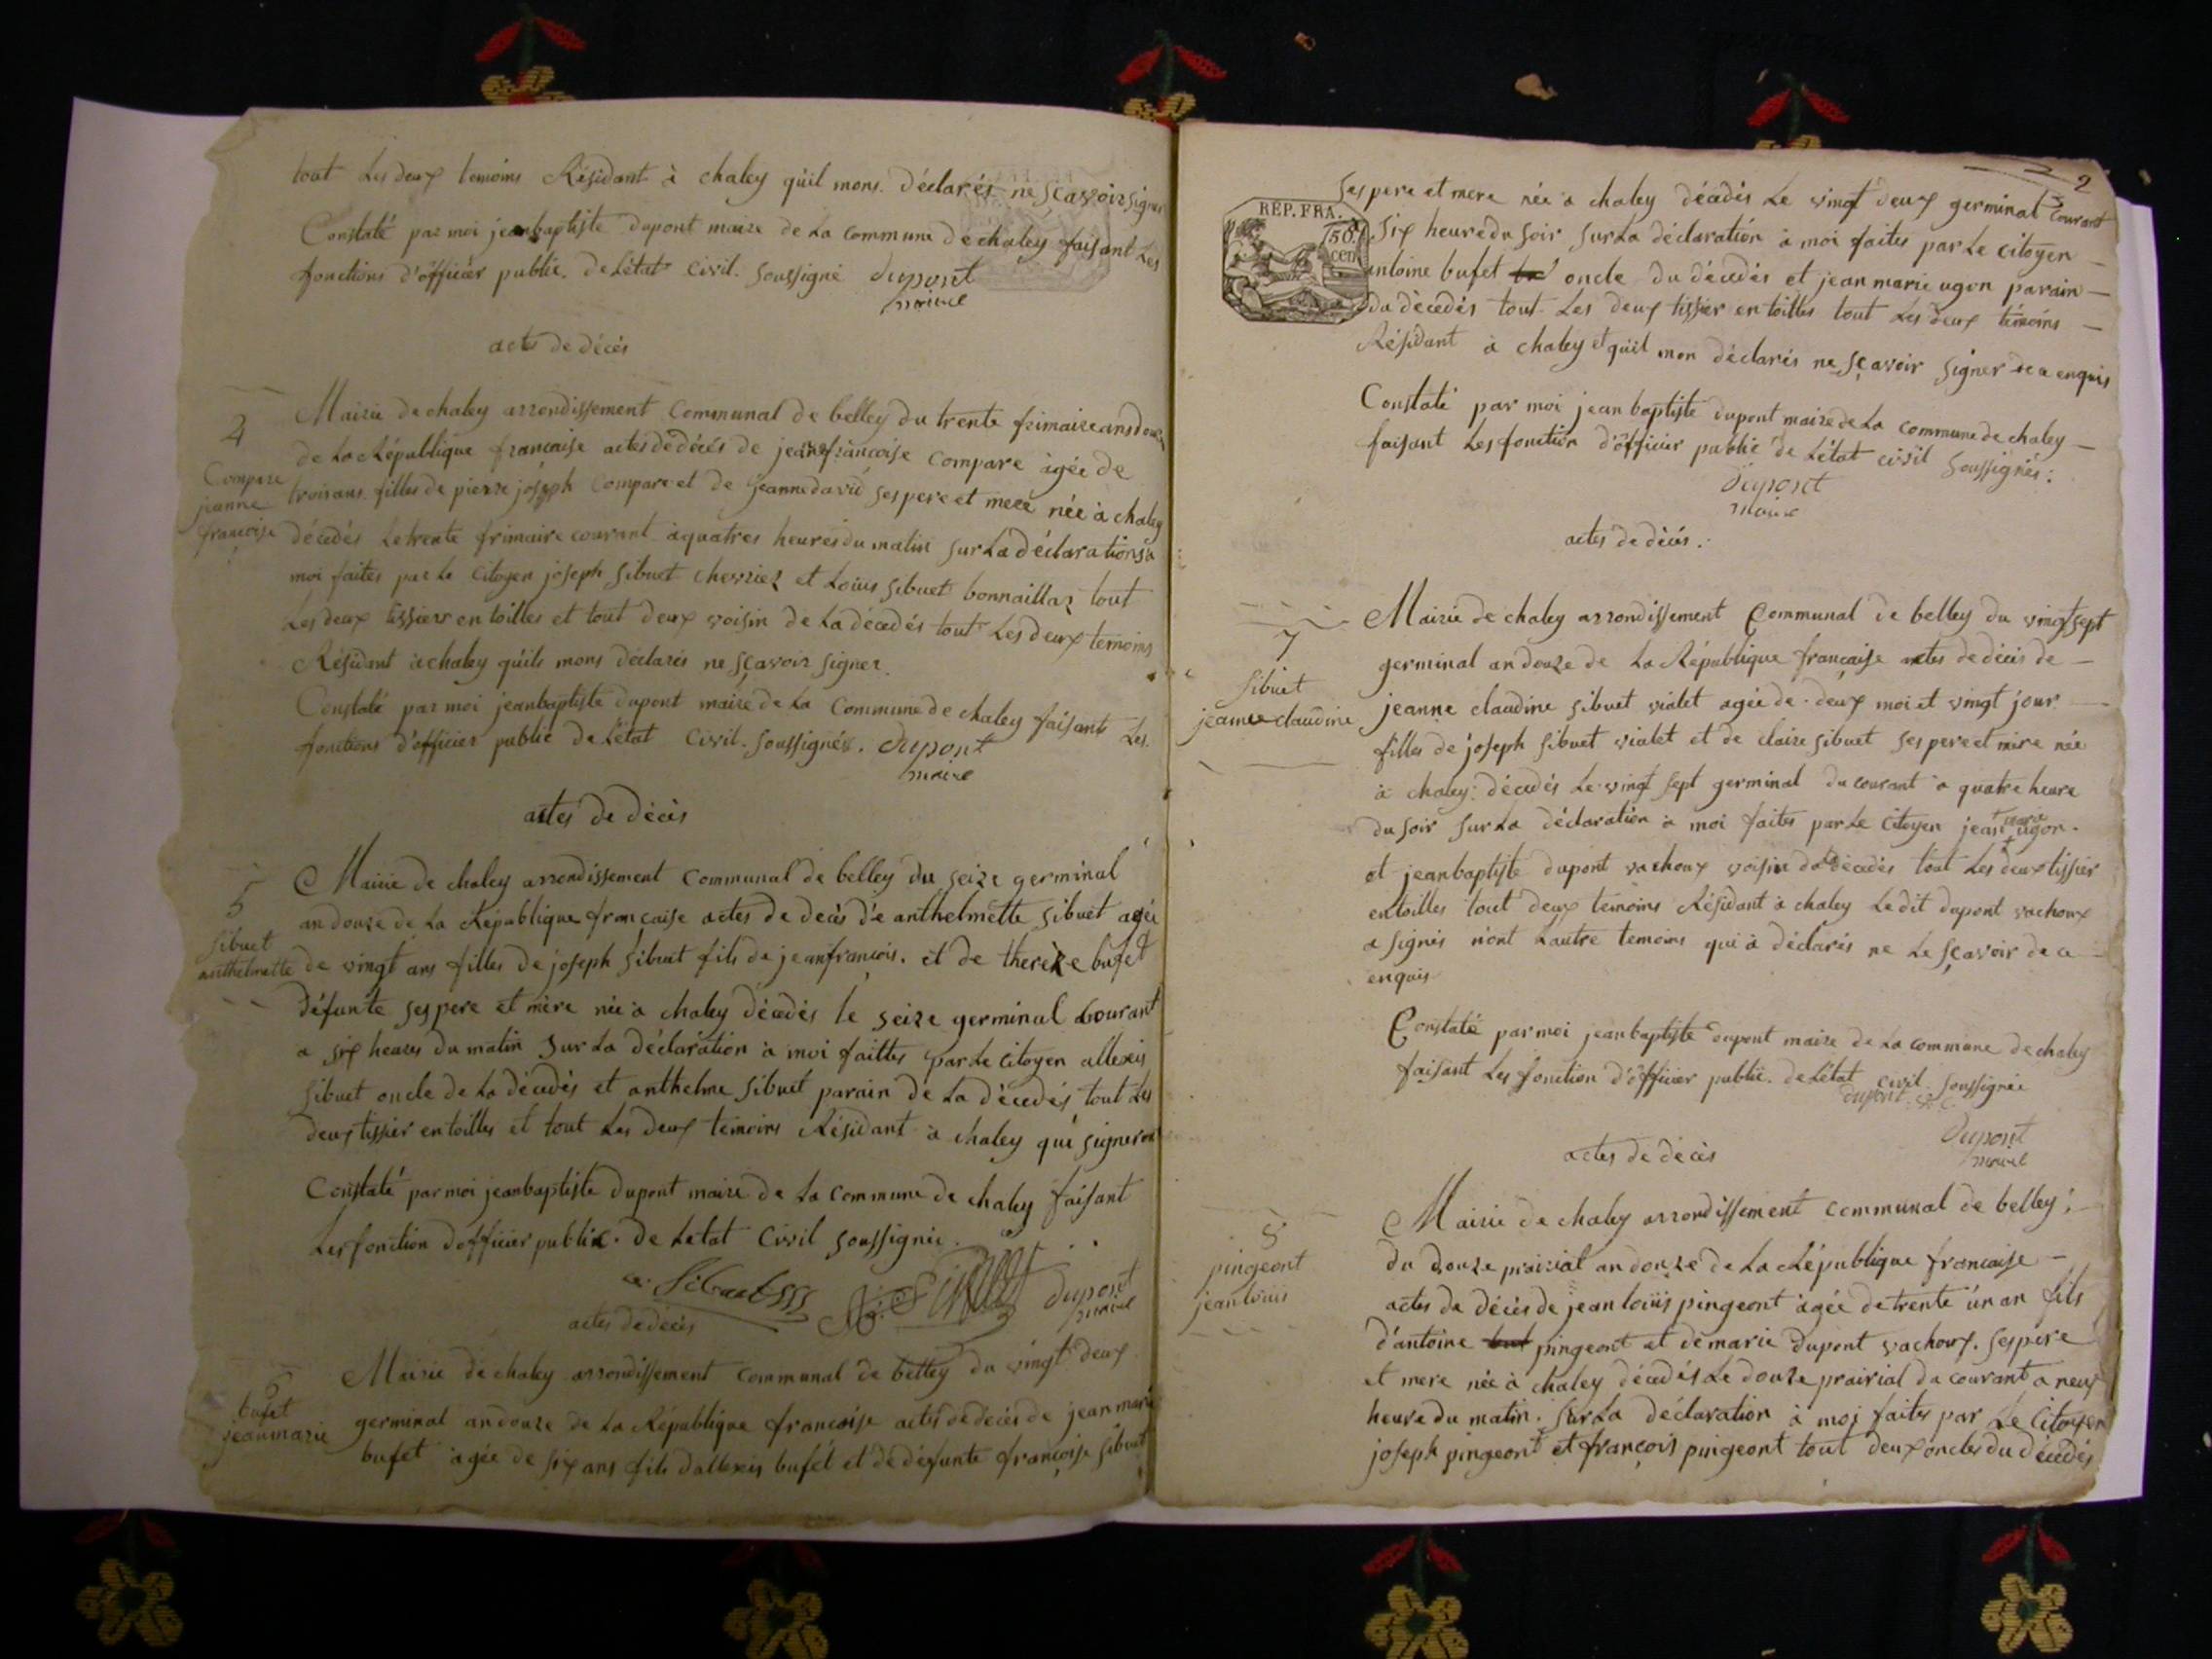 tout Les deux temoins Résidant à chaley quil mons. déclarés ne sçavoir signer
Constaté par moi jeanbaptiste dupont maire de La commune de chaley faisant Les
fonctions d'officier public. de Létat civil. soussigné dupont
maire
actes de décés
4
Compare
jeanne
francoise
Mairie de chaley arrondissement Communal de belley du trente frimaire ans douze
de La République francaise actes de décés de jeanne francoise Compare agée de
trois ans. filles de pierre joseph Compare et de jeanne david ses pere et mere née à chaley
décédés Le trente frimaire courant a quatres heures du matin sur La déclarations à
moi faites par Le Citoyen joseph sibuet chevrier et Loüis sibuet bonnaillar tout
Les deux tissier en toilles et tout deux voisin de La décédés tout Les deux temoins
Résidant à chaley quils mons déclarés ne sçavoir signer.
Constaté par moi jeanbaptiste dupont maire de La Commune de chaley faisant Les
fonctions d'officier public de Létat Civil. soussignés. dupont
maire
actes de décès
5
sibuet
anthelmette
Mairie de chaley arrondissement Communal de belley du seize germinal
an douze de La République francaise actes de decès de anthelmette sibuet agée
de vingt ans filles de joseph sibuet fils de jeanfrancois. et de therèze bufet
défunte ses pere et mère née à chaley décédés le seize germinal Courant
a six heures du matin sur La déclaration à moi faittes par Le citoyen allexis
sibuet oncle de La décédés et anthelme sibuet parain de La décedés tout Les
deux tissier en toilles et tout Les deux temoins Résidant à chaley qui signeron
Constaté par moi jeanbaptiste dupont maire de La commune de chaley faisant
Les fonction dofficier public. de Letat Civil soussignée.
dupont
maire
actes de décés
6
bufet
jeanmarie
Mairie de chaley arrondissement communal de belley du vingt deux
germinal an douze de La République francoise actes de décès de jean marie
bufet agée de six ans fils dallexis bufet et de défunte francoise sibuet
2
REP. FRA.
50
cen
ses pere et mere née à chaley décédés Le vingt deux germinal Courant
a six heure du soir sur La déclaration à moi faites par Le citoyen
antoine bufet oncle du décédés et jean marie ugon parain
du décédés tout Les deux tissier en toilles tout Les deux témoins
Résidant à chaley et quil mon déclarés ne sçavoir signer de a enquis
Constaté par moi jean baptiste dupont maire de La commune de chaley
faisant Les fonction d'officier public de Létat civil soussignés:
dupont
maire
actes de décès.
7
sibuet
jeanne claudine
Mairie de chaley arrondissement Communal de belley du vingt sept
germinal an douze de La République francaise actes de décés de
jeanne claudine sibuet vialet agée de deux moi et vingt jour
filles de joseph sibuet vialet et de claire sibuet ses pere et mère née
à chaley décédés Le vingt sept germinal du courant a quatre heure
du soir sur La déclaration à moi faites par Le Citoyen jean marie ugon.
et jeanbaptiste dupont vachoux voisin de La décédés tout Les deux tissier
en toilles tout deux témoins Résidant à chaley Le dit dupont vachoux
a signés n'ont Lautre temoins qui à déclarés ne Le sçavoir de a
enquis
Constaté par moi jeanbaptiste dupont maire de La commune de chaley
faisant Les fonction d'officier public. de Létat civil soussignée
dupont
dupont
maire
actes de décès
8
pingeont
jean loüis
Mairie de chaley arrondissement communal de belley;
du douze prairial an douze de La République francaise
actes de décès de jean loüis pingeont agée de trente un an fils
d'antoine pingeont et de marie dupont vachoux. ses pere
et mere née à chaley décédés Le douze prairial du courant a neuf
heure du matin. sur La déclaration à moi faites par Le Citoyen
joseph pingeont et françois pingeont tout deux oncles du décédés